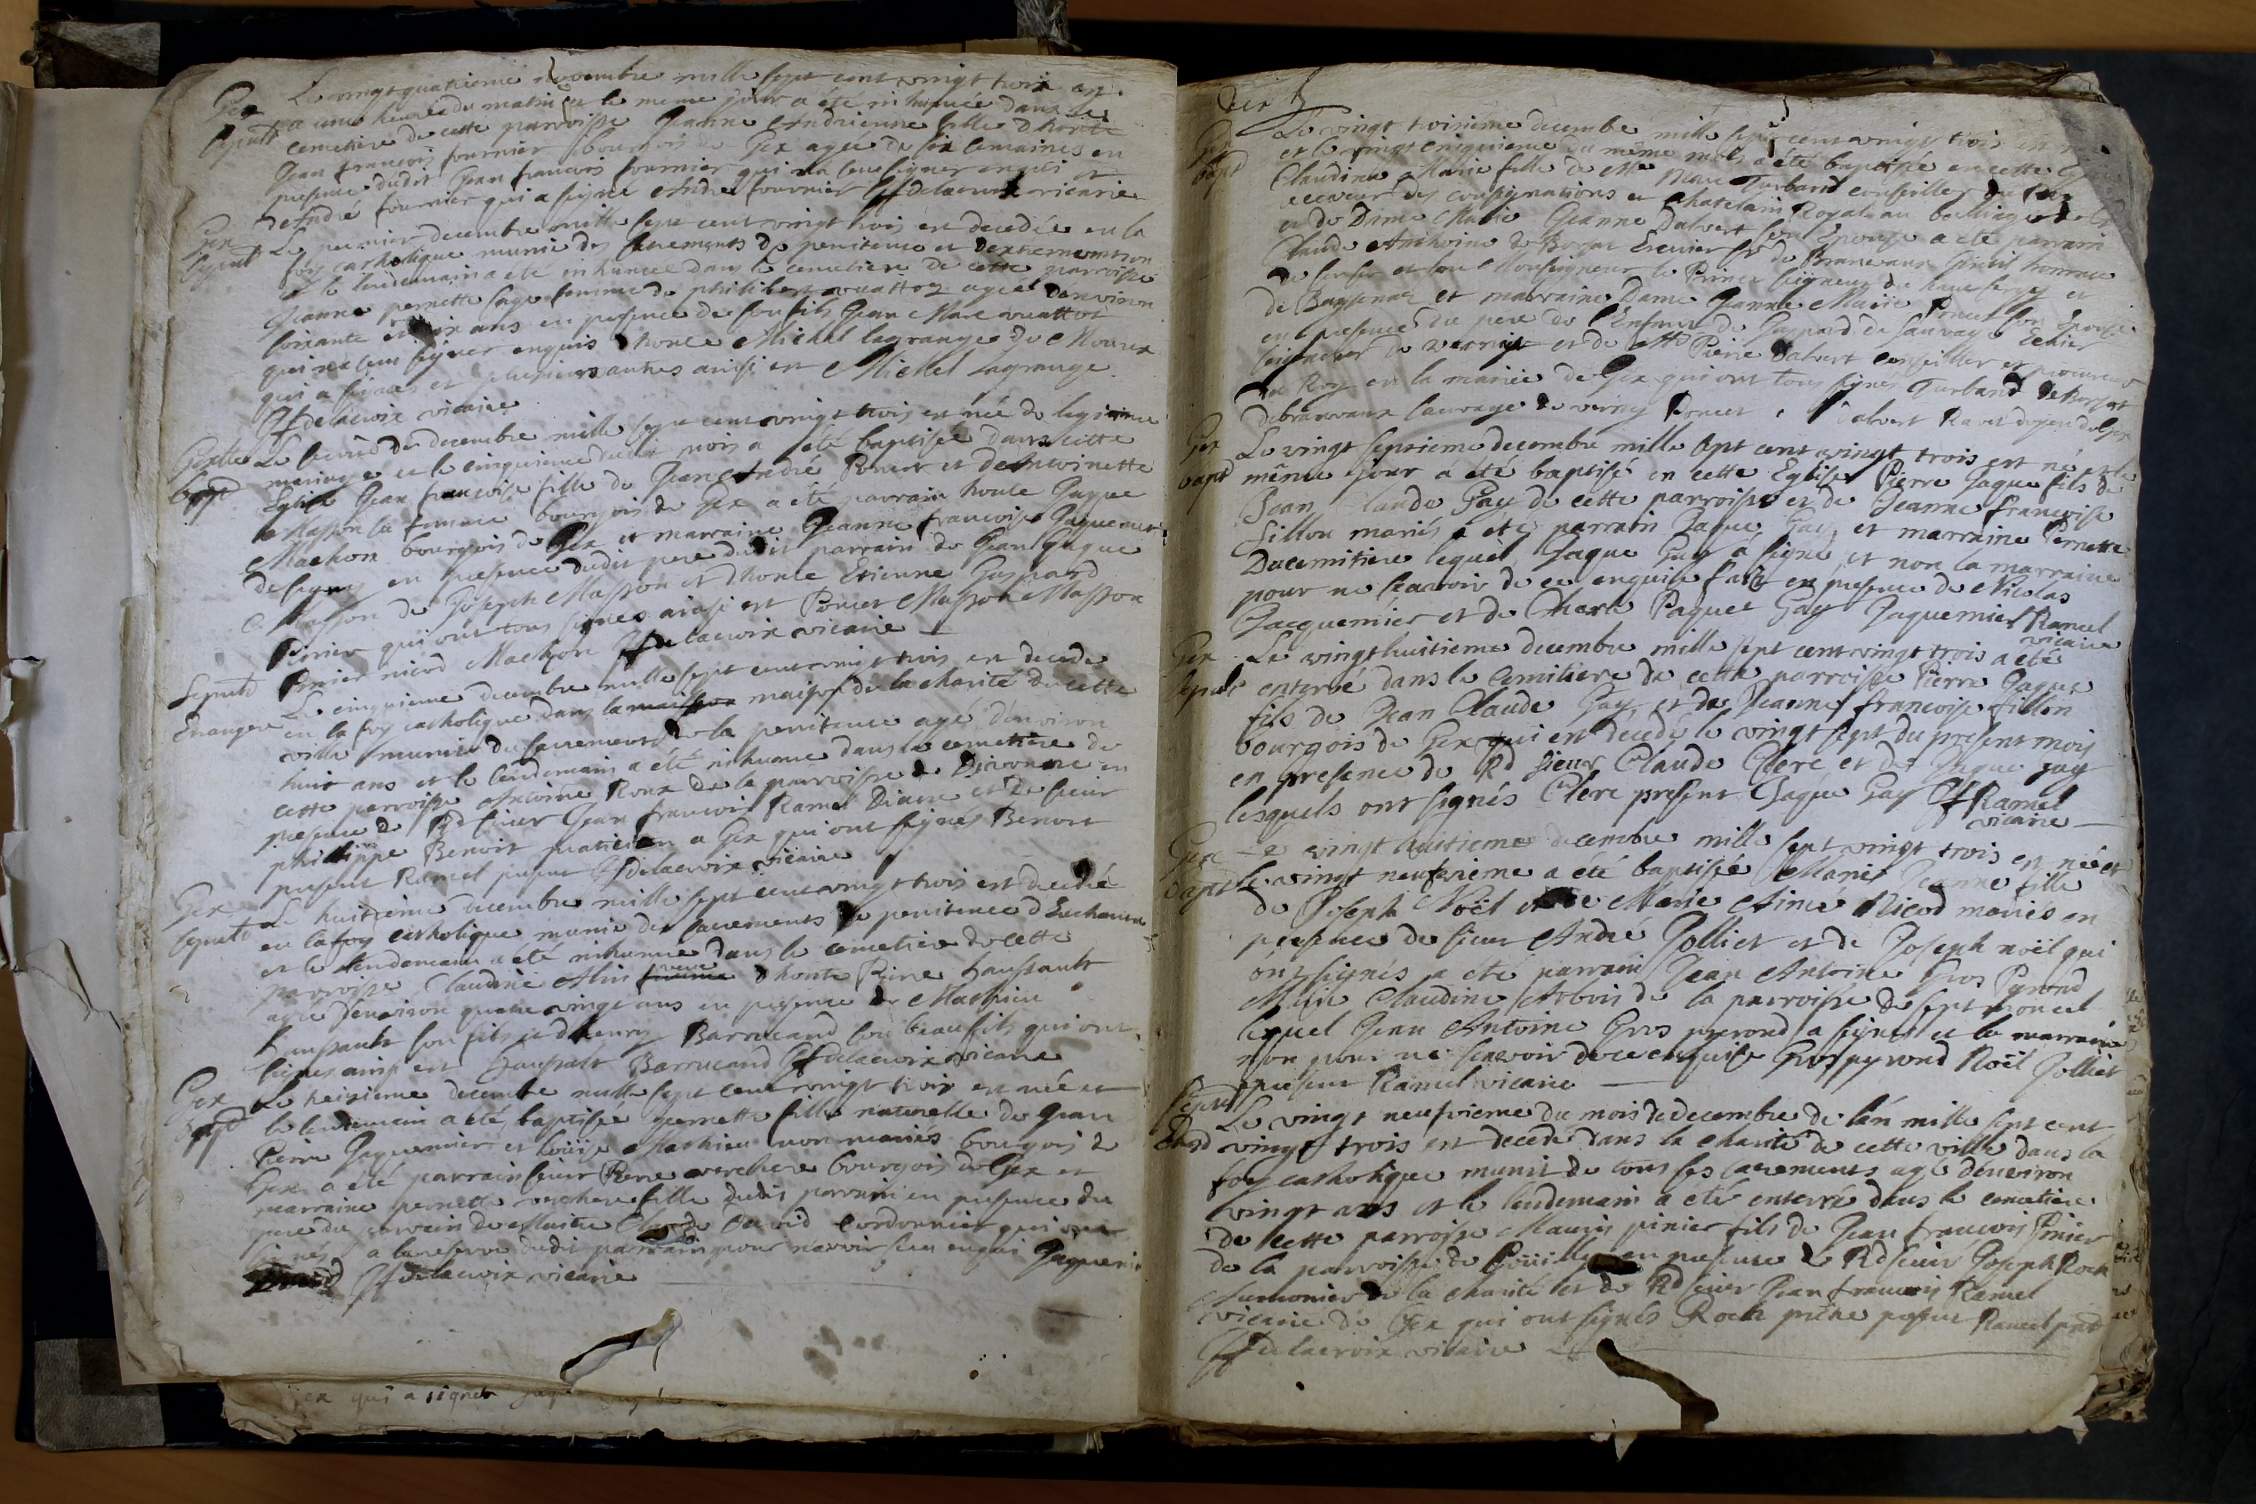 Gex
sepult
Le vingt quatrieme novembre mille sept cent vingt trois est
a une heure du matin et le meme jour a été inhumée dans le
cemetiere de cette parroisse Jeanne Andrienne fille d honte
Jean francois fournier bourgois de Gex agee de six semaines en
presence dudit Jean francois fournier qui n'a sceu signer enquis et
d'André fournier qui a signé André fournier Jf delacroix vicaire
Gex
sepult
Le premier decembre mille sept cent vingt trois est decedée en la
foy catholique munie des sacrements de penitence et d'extremeonction
et le lendemain a été inhumée dans le cemetiere de cette parroisse
Jeanne pernette sage femme de philibert vuattoz agée d'environ
soixante et dix ans en presence de son fils Jean Marc vuattoz
qui n'a sceu signer enquis d honte Michel lagrange de
qui a signé et plusieurs autres ainsi est Michel Lagrange
Jf delacroix vicaire
Gex
bapt
Le decembre mille sept cent vingt trois est née de legitime
mariage et le cinquieme dudit mois a été baptisée dans cette
Eglise Jean françoise fille de Jean André Poncet et de Antoinette
Masson sa femme bourgois de Gex a été parrain honte Jaque
Machon bourgois de Gex et marraine Jeanne francoise
de en presence dudit pere dudit parrain de Jean Jaque
Masson de Joseph Masson et d honte Etienne Gaspard
Perrier qui ont tous signés ainsi est Poncet Masson Masson
Perrier nicod Machon Jf delacroix vicaire
Sepult
Etranger
Le cinquieme decembre mille sept cent vingt trois est decedé
en la foy catholique dans la maison de la charité de cette
ville munie du sacrement de la penitence agé d'environ
huit ans et le lendemain a été inhumé dans le cemetiere de
cette parroisse Antoine Roux de la parroisse de Divonne en
presence de Rd sieur Jean francois Ramel Diacre et de sieur
philippe Benoit praticien a Gex qui ont signés Benoit
present Ramel present Jf delacroix vicaire
Gex
sepult
Le huitieme decembre mille sept cent vingt trois est decedé
en la foy catholique munie des sacrements de penitence d'Eucharistie
et le lendemain a été inhumée dans le cemetiere de cette
parroisse Claudine veuve d honte Pierre haussault
agée d'environ quatre vingt ans en presence de Mathieu
haussault son fils et d'henry Barrucand son beau fils qui ont
signés ainsi est haussault Barrucand Jf delacroix vicaire
Gex
bapt
Le decembre mille sept cent vingt trois est née et
le lendemain a été baptisée pernette fille naturelle de Jean
Pierre Jaquemier et Loüise Mathieu non mariés bourgois de
Gex a été parrain sieur Pierre verchere bourgois de Gex et
marraine pernette verchere fille dudit parrain en presence du
pere du parrain de Maitre Claude David cordonnier qui ont
signés a la reserve dudit parrain pour n'avoir sceu enquis Jaquemier
David Jf delacroix vicaire
Gex qui a signer
Gex
bapt
Le vingt troisieme decembre mille sept cent vingt trois est
et le vingt cinquieme du même mois a été baptisée en cette
Claudine Marie fille de Me Marc Turband conseiller du Roy
receveur des consignations et Chatelain Royal au bailliage de Gex
et de Dame Marie Jeanne Dalvert son Epouse a eté parrain
Claude Anthoine de Borsat Ecuier sr de Branvaux
de et marraine Dame Jeanne Marie Poncet son Epouse
en presence du pere de l'Enfant de Gaspard de Sauvage Ecuier
seigneur de vernay et de Me Pierre Dalvert conseiller et procureur
du Roy en la mairie de Gex qui ont tous signés Turband deBorsat
debranvaux Sauvage de verny Poncet Dalvert Ravet doyen de Gex
Gex
bapt
Le vingt septieme decembre mille sept cent vingt trois est né et le
même jour a été baptisé en cette Eglise Pierre Jaque fils de
Jean Claude Gay de cette parroisse et de Jeanne françoise
fillon mariés a eté parrain Jaque Gay et marraine Pernette
Ducemitiere lequel Jaque Gay a signé et non la marraine
pour ne scavoir de ce enquise fait en presence de Nicolas
Jacquemier et de Charle Paquet Gay Jaquemier Ramel
vicaire
Gex
sepult
Le vingthuitieme decembre mille sept cent vingt trois a eté
enterré dans le Cemitiere de cette parroisse Pierre Jaque
fils de Jean Claude Gay, et de Jeanne francoise fillon
bourgois de Gex qui est decedé le vingt sept du present mois
en presence de Rd sieur Claude Clerc et de Jaque gay
lesquels ont signés Clerc present Jaque Gay Jf Ramel
vicaire
Gex
bapt
Le vingt huitieme decembre mille sept vingt trois est née et
le vingt neufvieme a été baptisée Marie Jeanne fille
de Joseph Noël et de Marie Aimé Nicod mariés en
presence de sieur André Jolliet et de Joseph noël qui
ont signés a eté parrain Jean Antoine Gros Pyrond
Marie Claudine de la parroisse de sept moncel
lequel Jean Antoine Gros pyrond a signé et la marraine
non pour ne scavoir de ce enquise Gros pyrond Noël Jolliet
present Ramel vicaire
Sepult
Le vingt neufvieme du mois de decembre de l'an mille sept cent
vingt trois est decedé dans la charité de cette ville dans la
foy catholique munit de tous ses sacrements agé d'environ
vingt ans et le lendemain a eté enterré dans le cemetiere
de cette parroisse Mauris pinier fils de Jean francois Pinier
de la parroisse de en presence de Rd sieur Joseph Roch
aumonier de la charité et de Rd sieur Jean francois Ramel
vicaire de Gex qui ont signés Roch prêtre present Ramel pnt
Jf delacroix vicaire